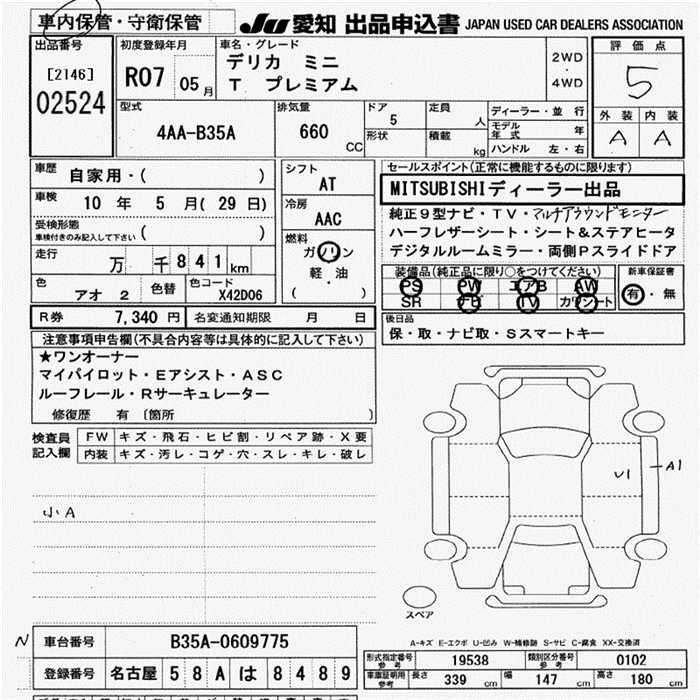 車内保管・守衛保管
JU 愛知 出品申込書 JAPAN USED CAR DEALERS ASSOCIATION
出品番号
[2146]
02524
初度登録年月
R07 05月
車名・グレード
デリカ ミニ
T プレミアム
2WD
・
4WD
評価点
5
外装 内装
A A
型式
4AA-B35A
排気量
660 CC
ドア
5
形状
定員
人
積載
kg
ディーラー・並行
モデル年 年
ハンドル 左・右
車歴
自家用・( )
車検
10 年 5 月( 29 日)
受検形態
車検付きのみ記入して下さい ( )
走行
万 千841km
色
アオ 2
色替
色コード
X42D06
シフト
AT
冷房
AAC
燃料
ガソリン
軽・油
( )
セールスポイント(正常に機能するものに限ります)
MITSUBISHIディーラー出品
純正9型ナビ・TV・マルチアラウンドモニター
ハーフレザーシート・シート&ステアヒータ
デジタルルームミラー・両側Pスライドドア
装備品(純正品に限り○をつけてください)
PS PW エアB AW
SR ナビ TV カワシート
新車保証書
有・無
後日品
保・取・ナビ取・Sスマートキー
R券 7,340 円 名変通知期限 月 日
注意事項申告欄(不具合内容等は具体的に記入して下さい)
★ワンオーナー
マイパイロット・Eアシスト・ASC
ルーフレール・Rサーキュレーター
修復歴 有 〔箇所 〕
検査員
記入欄
FW キズ・飛石・ヒビ割・リペア跡・X要
内装 キズ・汚レ・コゲ・穴・スレ・キレ・破レ
小A
U1
A1
スペア
N 車台番号 B35A-0609775
登録番号 名古屋 58A は 8489
A-キズ E-エクボ U-凹み W-補修跡 S-サビ C-腐食 XX-交換済
形式指定番号 参考 19538 類別区分番号 参考 0102
車庫証明用 参考 長さ 339 cm 幅 147 cm 高さ 180 cm